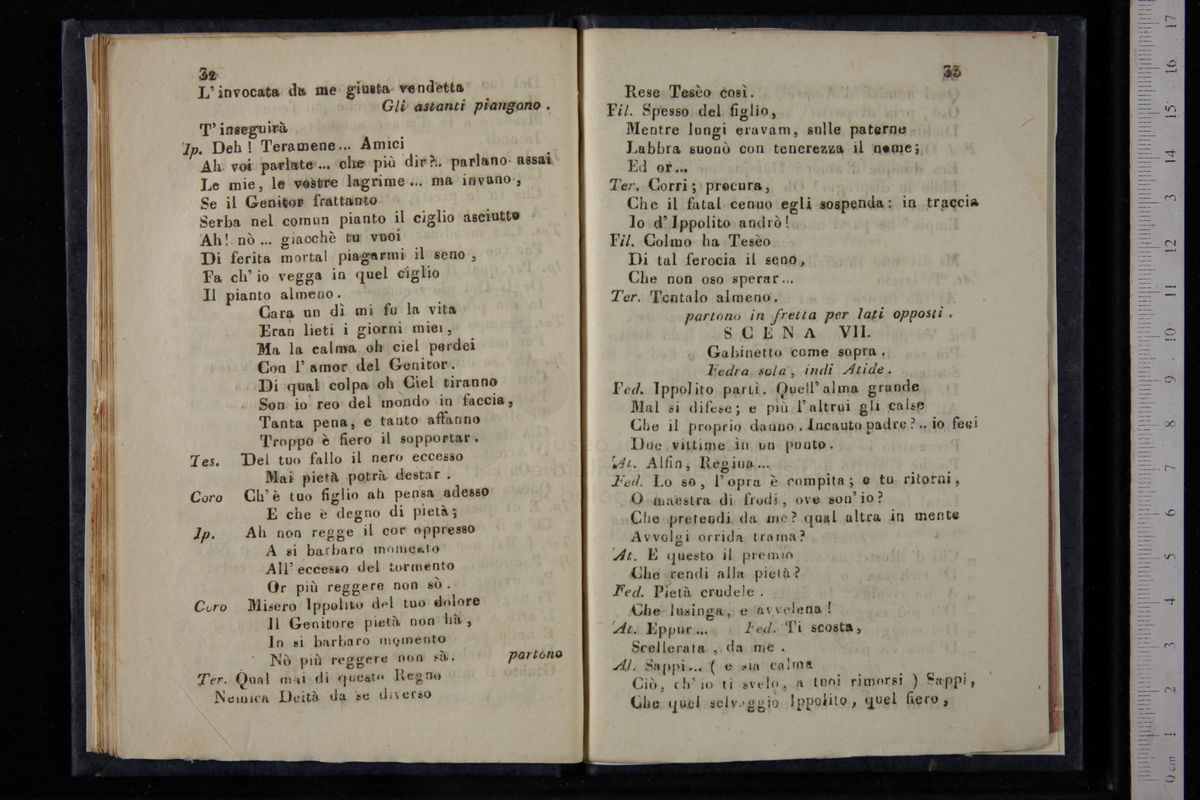 32
L' invocata da me giusta vendetta
Gli astanti piangono .
T' inseguirà
Ip. Deh ! Teramene... Amici
Ah voi parlate ... che più dir?.. parlano assai
Le mie, le vostre lagrime ... ma invano ,
Se il Genitor frattanto
Serba nel comun pianto il ciglio asciutto
Ah ! nò ... giacchè tu vuoi
Di ferita mortal piagarmi il seno ,
Fa ch' io vegga in quel ciglio
Il pianto almeno .
Cara un dì mi fu la vita
Eran lieti i giorni miei ,
Ma la calma oh ciel perdei
Con l' amor del Genitor .
Di qual colpa oh Ciel tiranno
Son io reo del mondo in faccia ,
Tanta pena , e tanto affanno
Troppo è fiero il sopportar .
Tes. Del tuo fallo il nero eccesso
Mai pietà potrà destar .
Coro Ch' è tuo figlio ah pensa adesso
E che è degno di pietà ;
Ip. Ah non regge il cor oppresso
A si barbaro momento
All' eccesso del tormento
Or più reggere non sò .
Coro Misero Ippolito del tuo dolore
Il Genitore pietà non hà ,
In si barbaro momento
Nò più reggere non sà . partono
Ter. Qual mai di questo Regno
Nemica Deità da se diverso
33
Rese Tesèo così .
Fil. Spesso del figlio ,
Mentre lungi eravam , sulle paterne
Labbra suonò con tenerezza il nome ;
Ed or ...
Ter. Corri ; procura ,
Che il fatal cenno egli sospenda : in traccia
Io d' Ippolito andrò !
Fil. Colmo ha Tesèo
Di tal ferocia il seno ,
Che non oso sperar ...
Ter. Tentalo almeno .
partono in fretta per lati opposti .
SCENA VII.
Gabinetto come sopra .
Fedra sola , indi Atide .
Fed. Ippolito partì . Quell' alma grande
Mal si difese ; e più l' altrui gli calse
Che il proprio danno . Incauto padre ?.. io feci
Due vittime in un punto .
At. Alfin , Regina ...
Fed. Lo so , l' opra è compita ; e tu ritorni ,
O maestra di frodi , ove son' io ?
Che pretendi da me ? qual altra in mente
Avvolgi orrida trama ?
At. E questo il premio
Che rendi alla pietà ?
Fed. Pietà crudele .
Che lusinga , e avvelena !
At. Eppur ... Fed. Ti scosta ,
Scellerata , da me .
At. Sappi ... ( e sia calma
Ciò , ch' io ti svelo , a tuoi rimorsi ) Sappi ,
Che quel selvaggio Ippolito , quel fiero ,